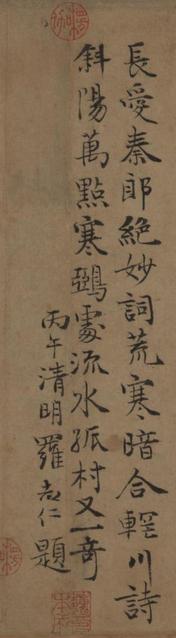 長愛秦郎絕妙詞荒寒暗合輞川詩
斜陽萬點寒鵶處流水孤村又一奇
丙午清明羅志仁題